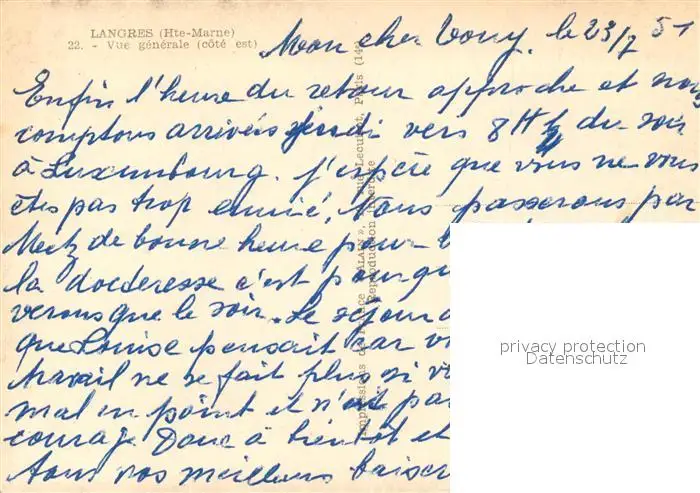 LANGRES (Hte-Marne)
22. - Vue générale (côté est)
Mon cher Tony, le 23/7 51
Enfin l'heure du retour approche et nous
comptons arrivés jeudi vers 8H ½ du soir
à Luxembourg. j'espère que vous ne vous
êtes pas trop ennuié, Nous passerons par
Metz de bonne heure pour
la doctoresse c'est pourqu
verons que le soir. Le séjour
que Louise pensait car v
travail ne se fait plus si v
mal en point et n'est pas
courage Donc à bientôt et
tous nos meilleurs baiser
Reproduction interdite
privacy protection
Datenschutz